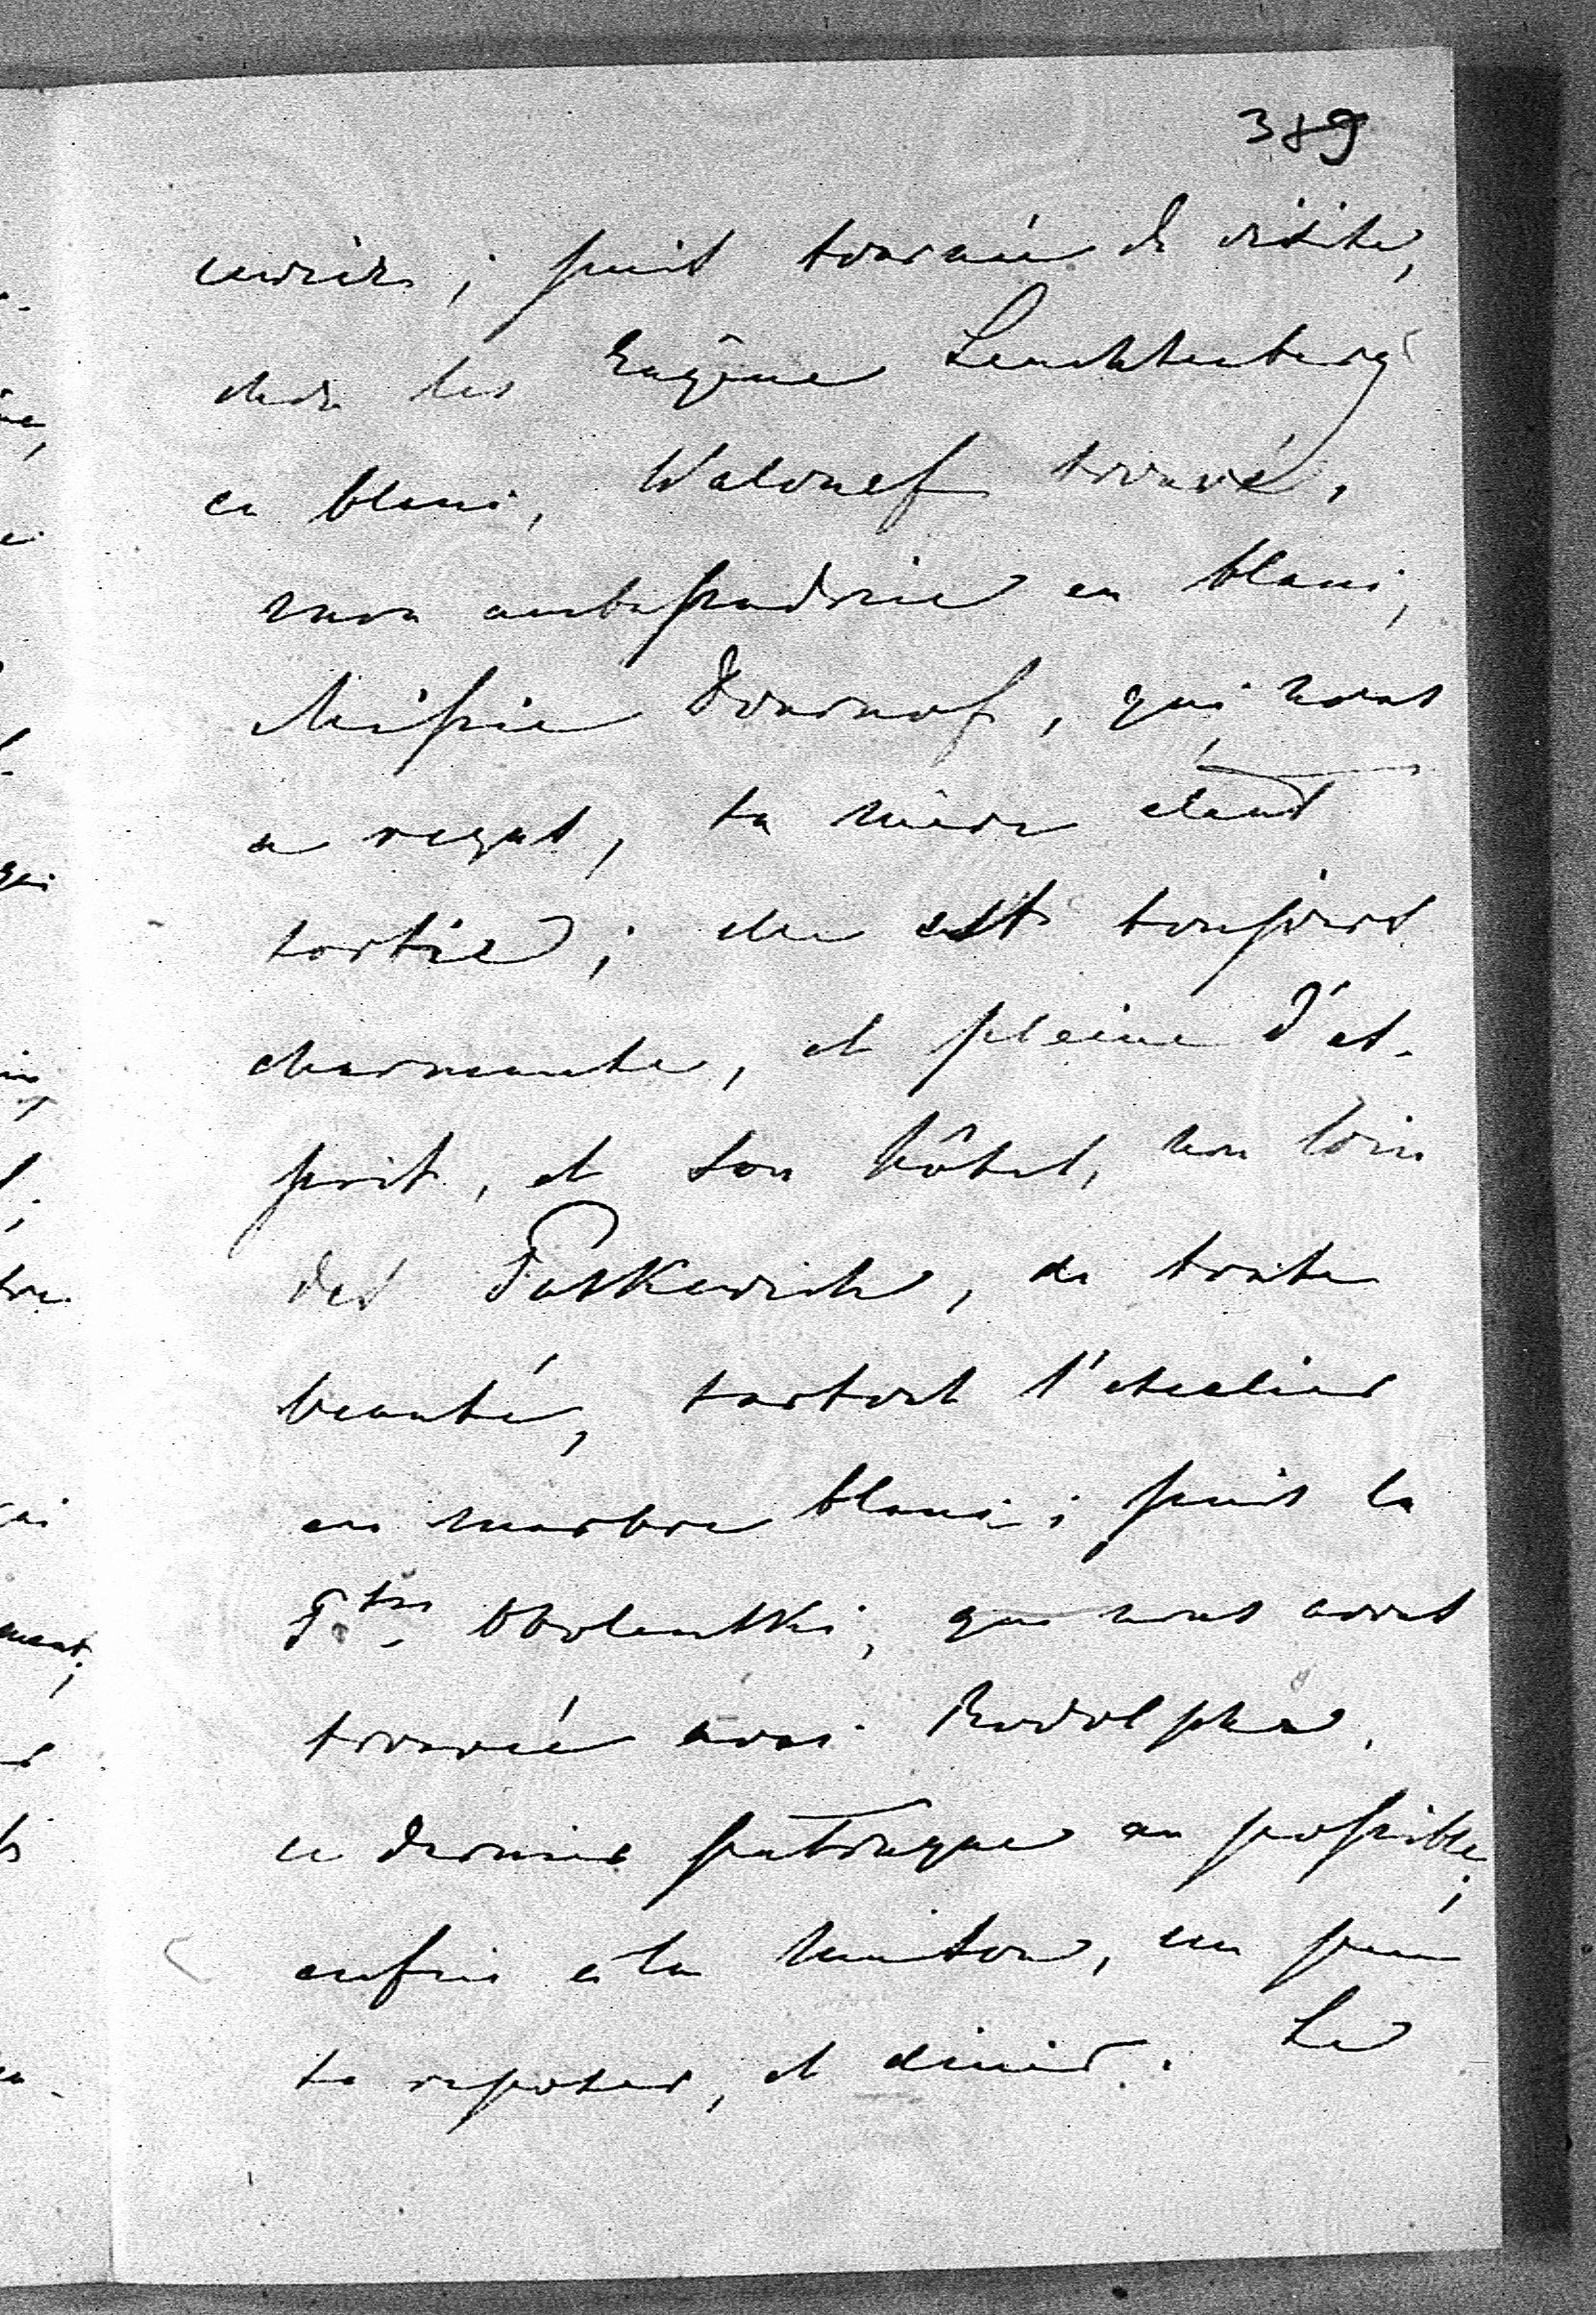 389
; puis tournée de visites,
chez les Eugène Leuchtenberg
en blanc, Walouef trouvé,
mon ambassadrice en blanc,
Missie Dournof, qui nous
a reçus, sa mère étant
sortie; elle est toujours
charmante, et pleine d'es-
prit, et son hôtel, non loin
des Paskewich, de toute
beauté, surtout l'escalier
en marbre blanc; puis la
Psse Obolenski, que nous avons
trouvée avec Rodolphe,
ce dernier patraque au possible;
enfin à la maison, un peu
se reposer, et dîner. Le